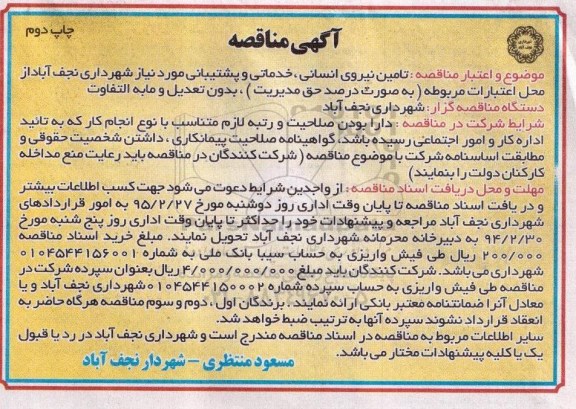 چاپ دوم
آگهی مناقصه
موضوع و اعتبار مناقصه : تامین نیروی انسانی ، خدماتی و پشتیبانی مورد نیاز شهرداری نجف آباد از
محل اعتبارات مربوطه ( به صورت درصد حق مدیریت ) ، بدون تعدیل و مابه التفاوت
دستگاه مناقصه گزار : شهرداری نجف آباد
شرایط شرکت در مناقصه : دارا بودن صلاحیت و رتبه لازم متناسب با نوع انجام کار که به تائید
اداره کار و امور اجتماعی رسیده باشد، گواهینامه صلاحیت پیمانکاری ، داشتن شخصیت حقوقی و
مطابقت اساسنامه شرکت با موضوع مناقصه ( شرکت کنندگان در مناقصه باید رعایت منع مداخله
کارکنان دولت را بنمایند)
مهلت و محل دریافت اسناد مناقصه : از واجدین شرایط دعوت می شود جهت کسب اطلاعات بیشتر
و دریافت اسناد مناقصه تا پایان وقت اداری روز دوشنبه مورخ ۹۵/۲/۲۷ به امور قراردادهای
شهرداری نجف آباد مراجعه و پیشنهادات خود را حداکثر تا پایان وقت اداری روز پنج شنبه مورخ
۹۴/۲/۳۰ به دبیرخانه محرمانه شهرداری نجف آباد تحویل نمایند. مبلغ خرید اسناد مناقصه
۲۰۰/۰۰۰ ریال طی فیش واریزی به حساب سیبا بانک ملی به شماره ۰۱۰۴۵۴۴۱۵۶۰۰۱
شهرداری می باشد. شرکت کنندگان باید مبلغ ۴/۰۰۰/۰۰۰/۰۰۰ ریال بعنوان سپرده شرکت در
مناقصه طی فیش واریزی به حساب سپرده شماره ۰۱۰۴۵۴۴۱۵۰۰۰۲ شهرداری نجف آباد و یا
معادل آنرا ضمانتنامه معتبر بانکی ارائه نمایند. برندگان اول ، دوم و سوم مناقصه هرگاه حاضر به
انعقاد قرارداد نشوند سپرده آنها به ترتیب ضبط خواهد شد.
سایر اطلاعات مربوط به مناقصه در اسناد مناقصه مندرج است و شهرداری نجف آباد در رد یا قبول
یک یا کلیه پیشنهادات مختار می باشد.
مسعود منتظری – شهردار نجف آباد